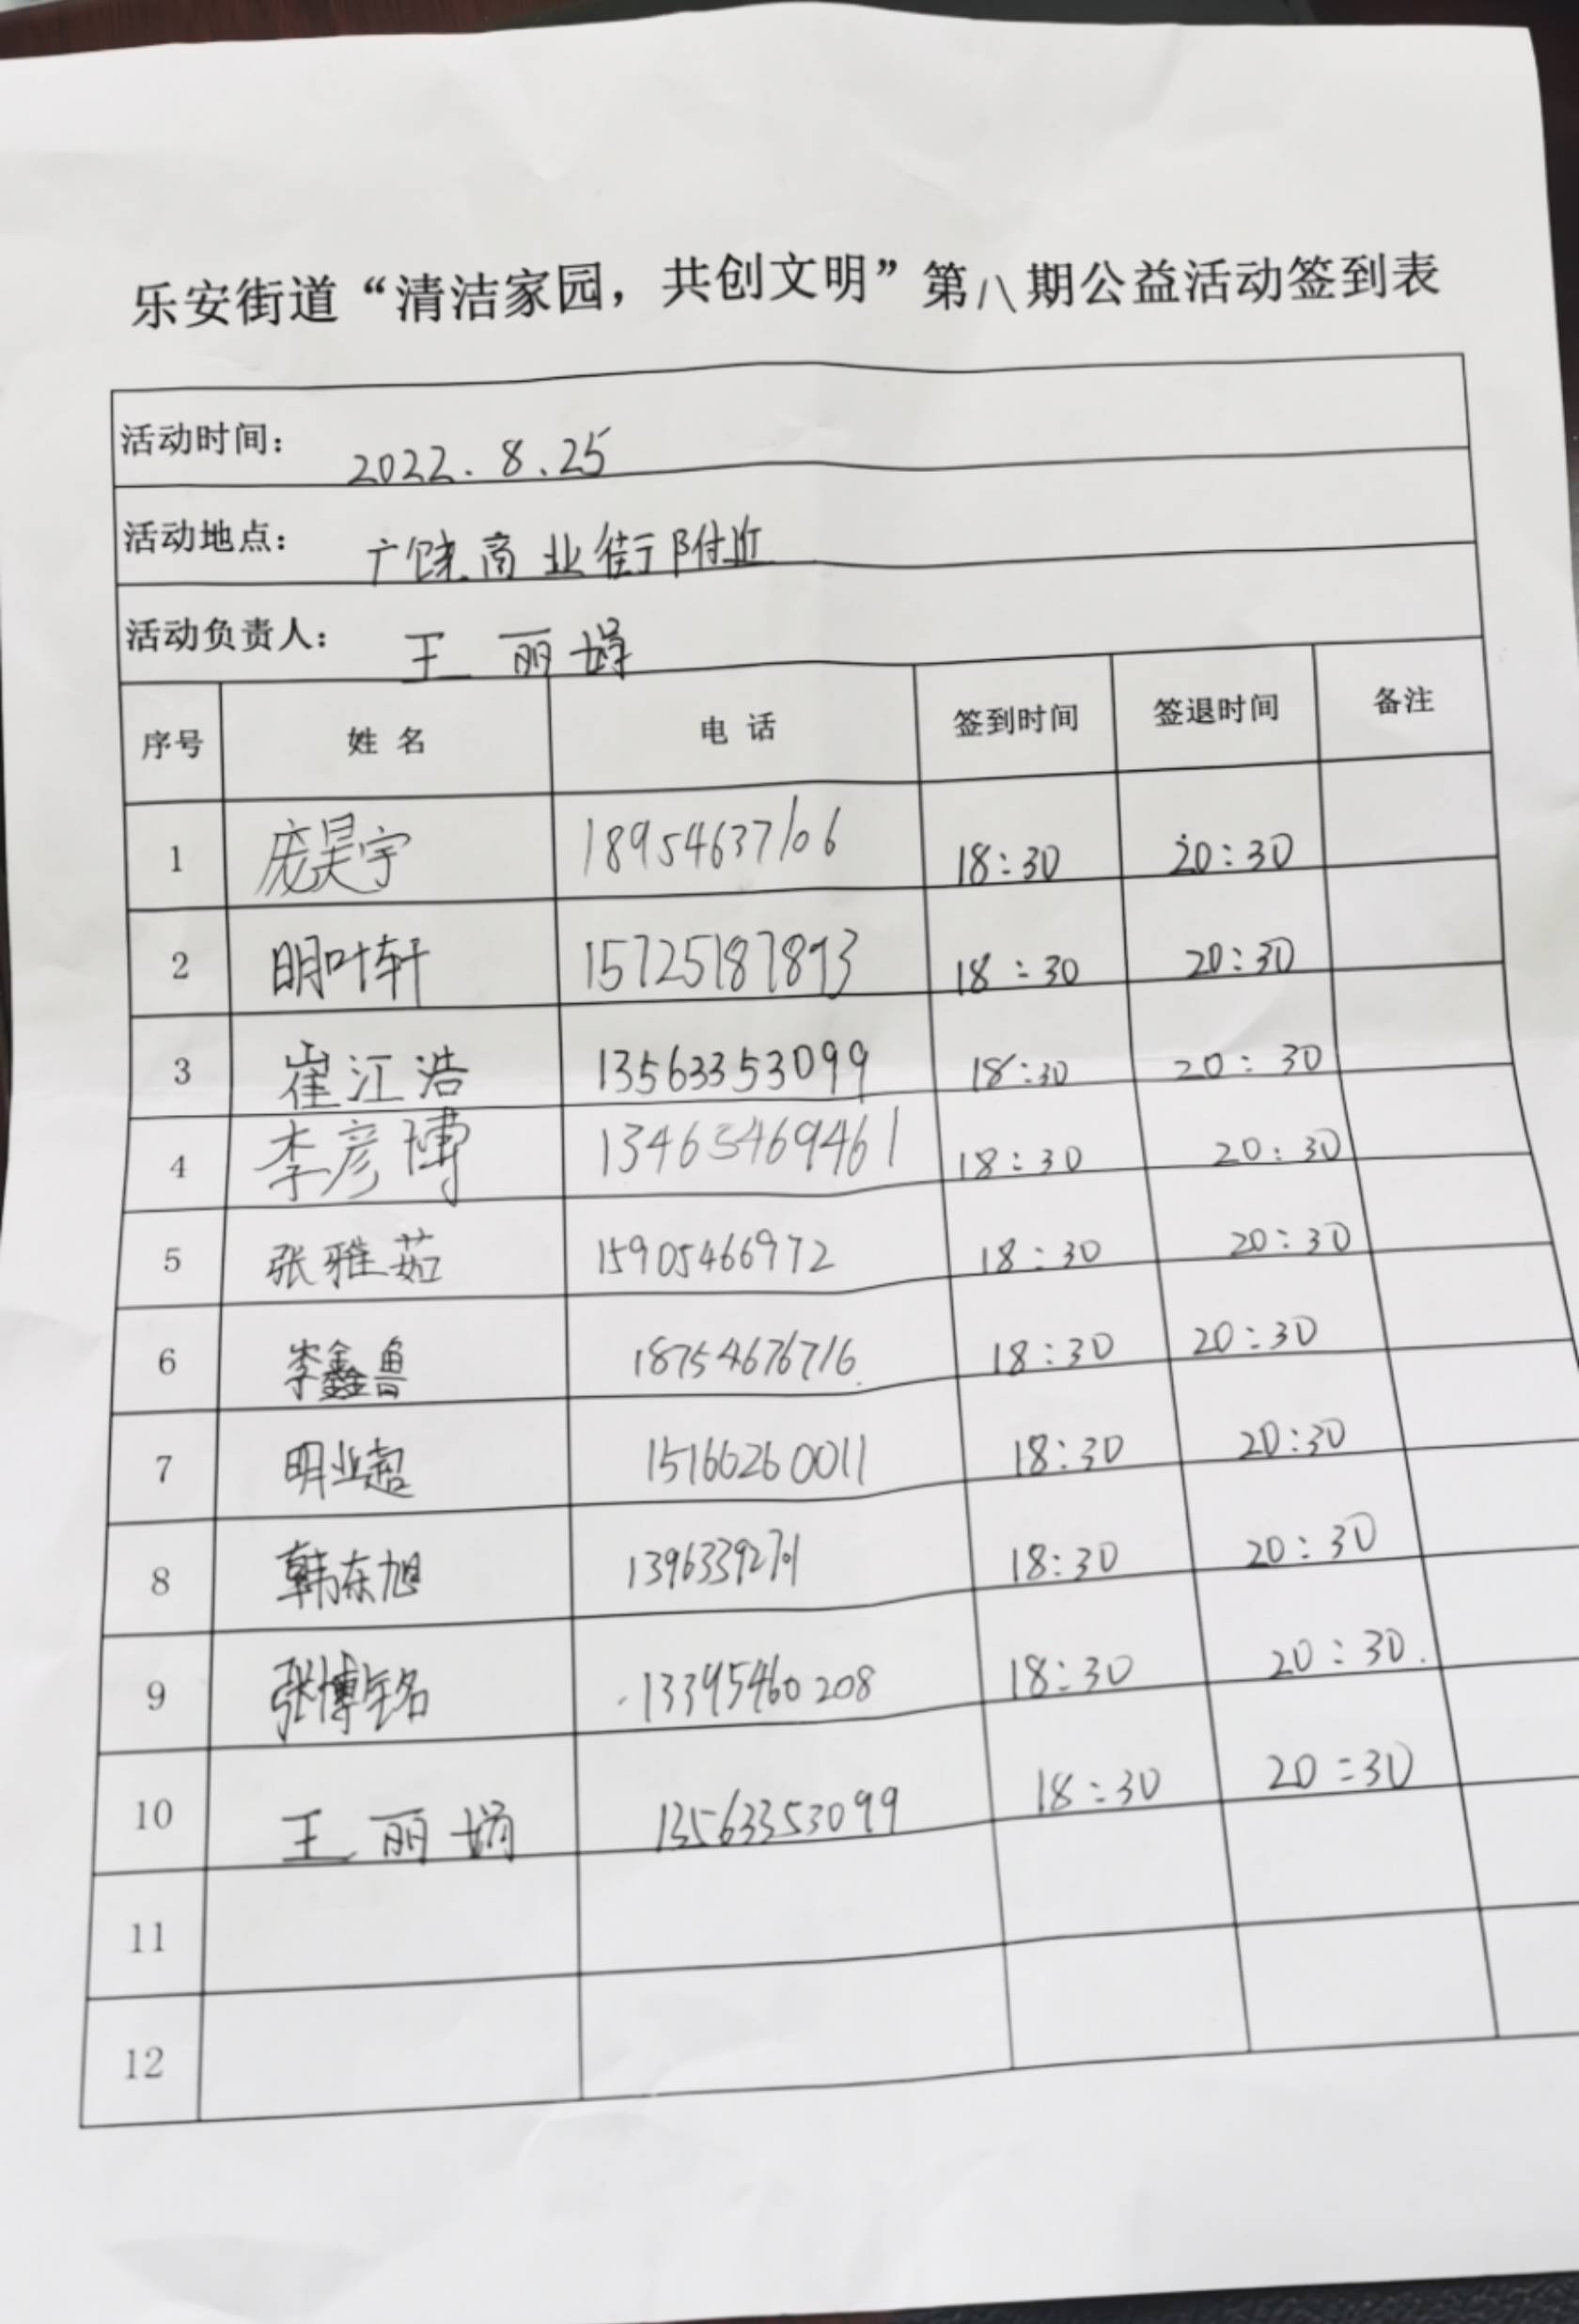 乐安街道“清洁家园，共创文明”第八期公益活动签到表
活动时间： 2022.8.25
活动地点： 广饶商业街附近
活动负责人： 王丽娟
序号 姓名 电话 签到时间 签退时间 备注
1 庞昊宇 18954637106 18:30 20:30
2 明叶轩 15725187893 18:30 20:30
3 崔江浩 13563353099 18:30 20:30
4 李彦博 13465469461 18:30 20:30
5 张雅茹 15905466972 18:30 20:30
6 李鑫鲁 18754676716 18:30 20:30
7 明业超 15166260011 18:30 20:30
8 韩东旭 18:30 20:30
9 张博铭 13395460208 18:30 20:30
10 王丽娟 13563353099 18:30 20:30
11
12